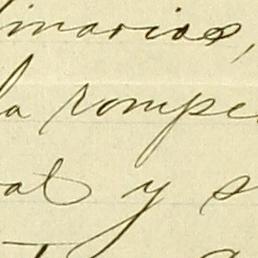 inarias,
la rompe
al y s